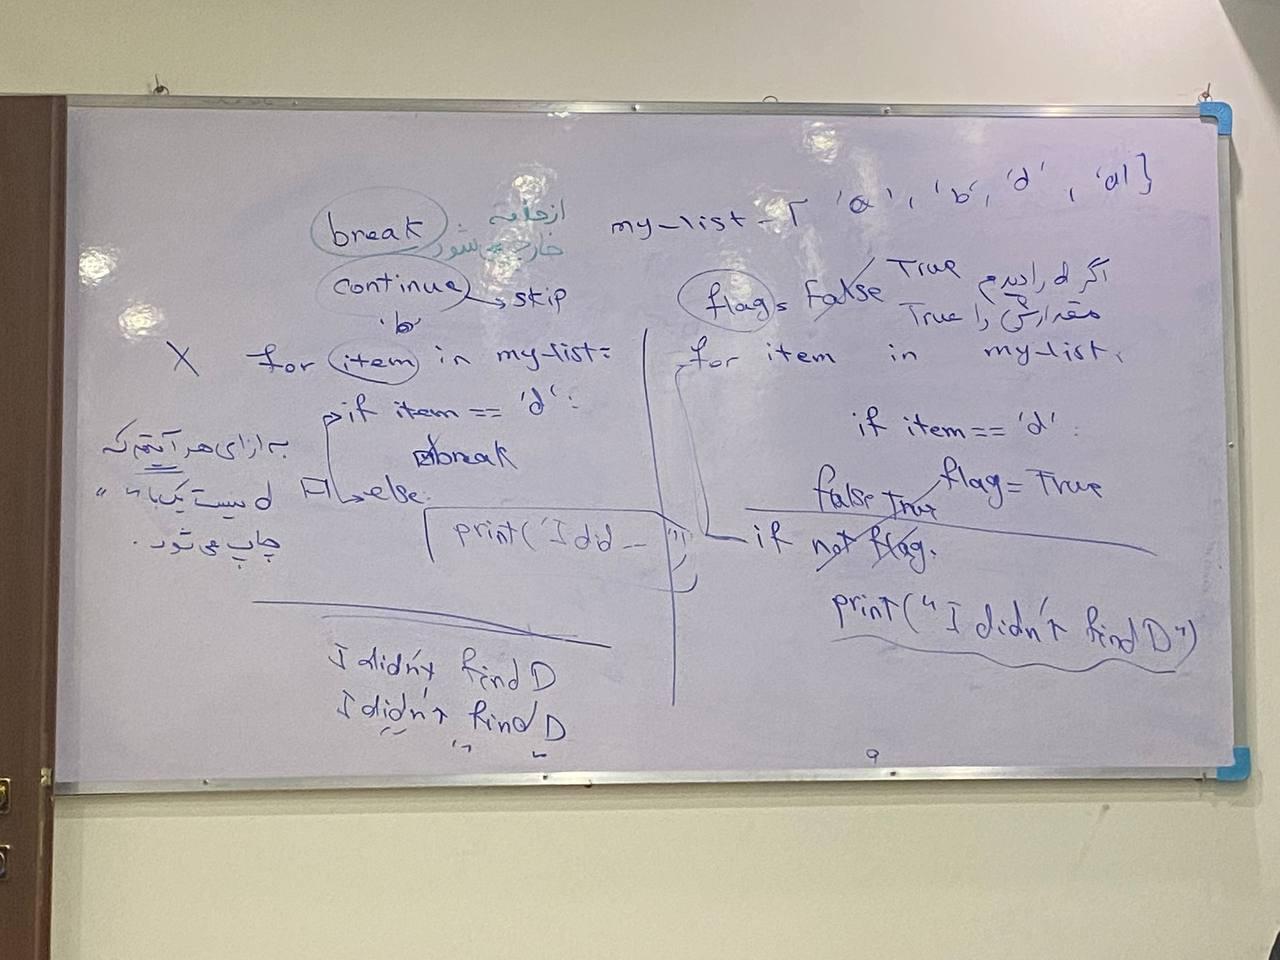 my-list = [ 'a', 'b', 'd', 'a' ]
break از حلقه خارج می‌شود
continue → skip
'b'
X for item in my-list:
if item == 'd':
break
else:
print('I did --
به ازای هر آیتم که
d نیست یک بار " "
چاپ می‌شود.
I didn't find D
I didn't find D
flag = False True
اگر d را دیدیم
مقدارش را True
for item in my-list:
if item == 'd':
flag = True
False True
if not flag:
print("I didn't find D")
9